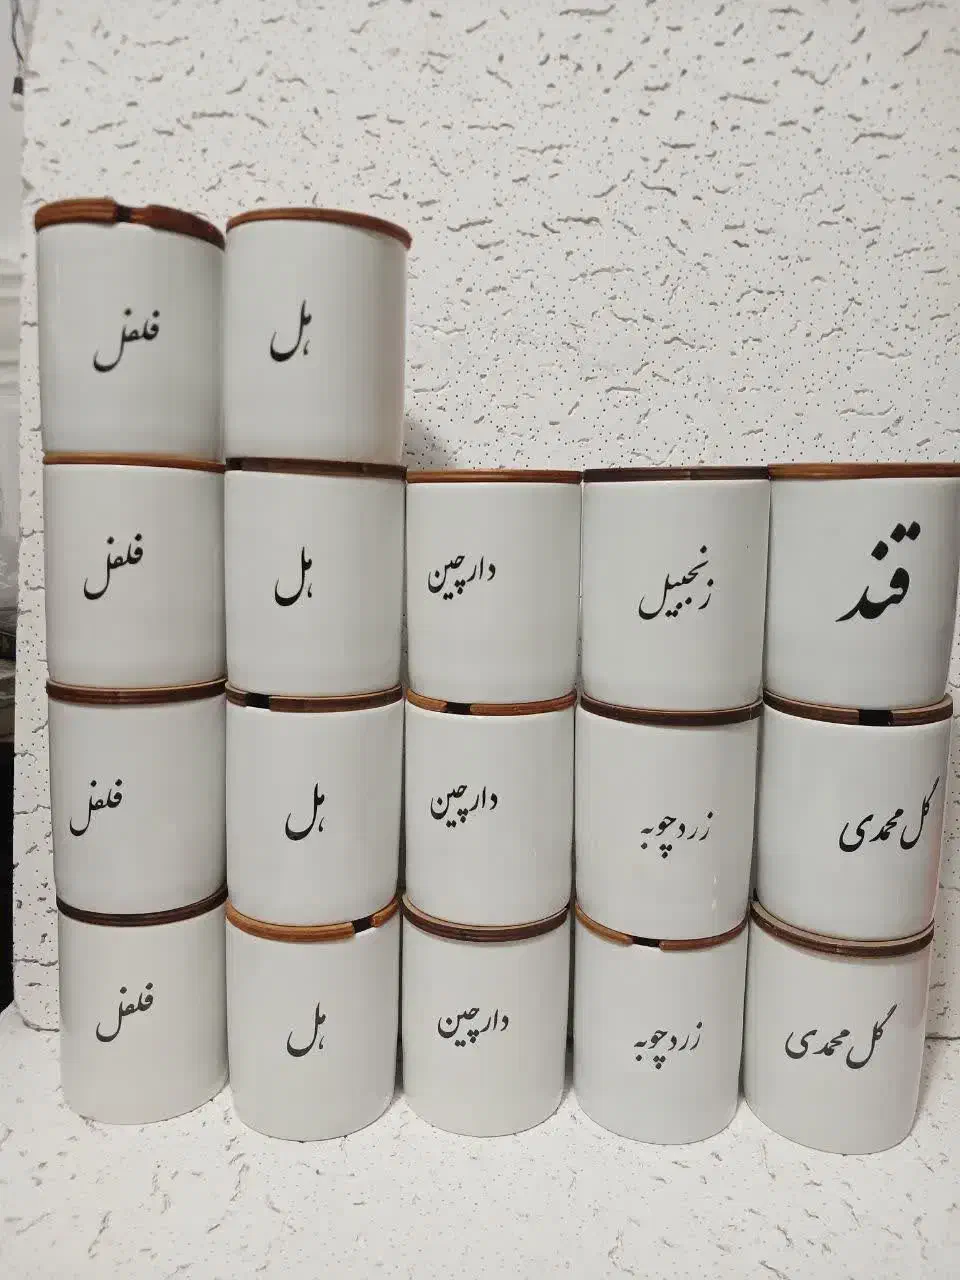 هل
فلفل
قند
زنجبیل
دارچین
هل
فلفل
گل محمدی
زردچوبه
دارچین
هل
فلفل
گل محمدی
زردچوبه
دارچین
هل
فلفل